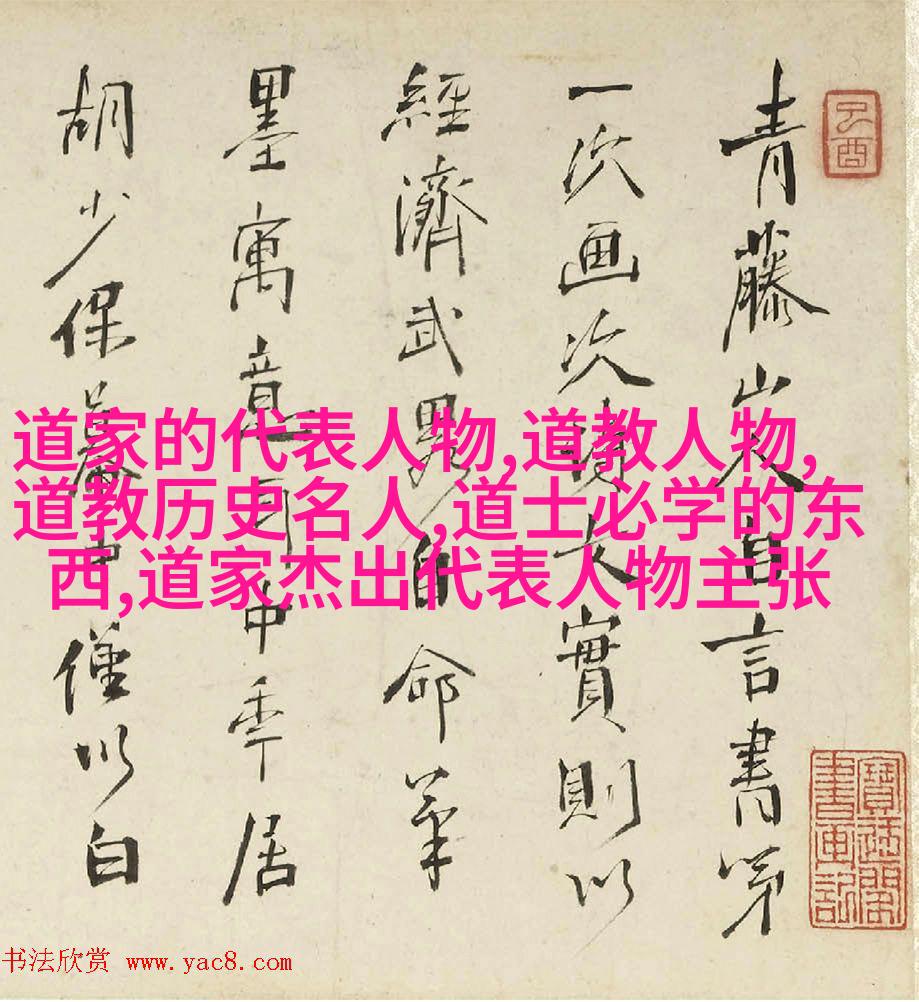 青藤山人自言書第
一次画次 實則以
經濟武畧自命筆
墨寓意耳中年居
胡少保幕中僅以白
己酉
寶迂閣
書画記
道家的代表人物,道教人物,
道教历史名人,道士必学的东
西,道家杰出代表人物主张
书法欣赏 www.yac8.com